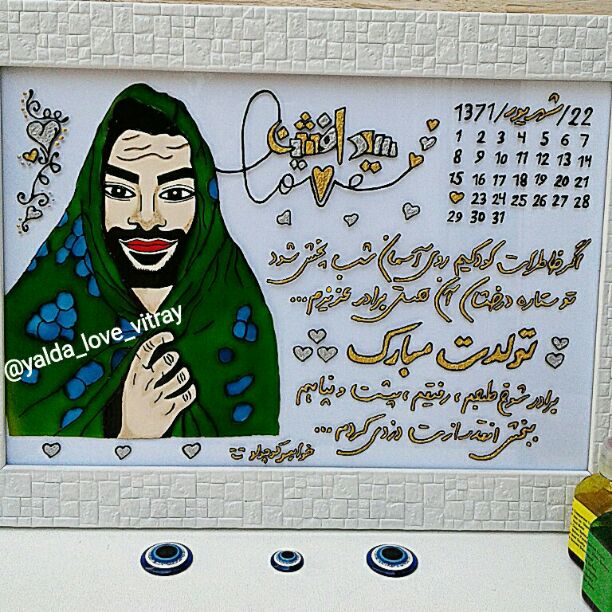 سید افشین
22/شهریور/1371
1 2 3 4 5 6 7
8 9 10 11 12 13 14
15 16 17 18 19 20 21
23 24 25 26 27 28
29 30 31
اگر خاطرات کودکیم روی آسمان شب پخش شود
تو ستاره درخشان آن هستی برادر عزیزم...
تولدت مبارک
برادر شوخ طبعم، رفیقم، پشت و پناهم
ببخش انقدر ازت دزدی کردم...
خواهر کوچولوت
@yalda_love_vitray